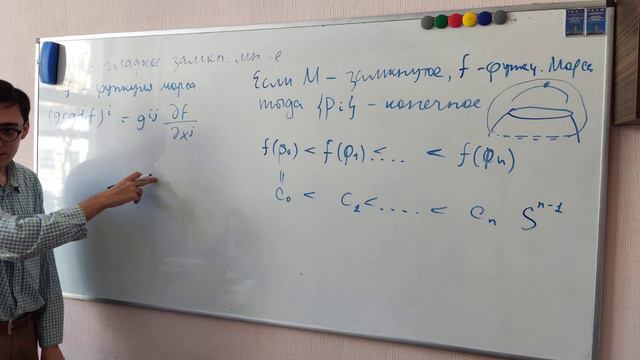 - гладкое замкн. мн-е
f функция морса
(grad f)^i = g^{ij} ∂f/∂x^j
Если M - замкнутое, f - функц. Морса
тогда {Pi} - конечное
f(p₀) < f(p₁) < .... < f(pₙ)
=
C₀ < C₁ < ..... < Cₙ S^{n-1}